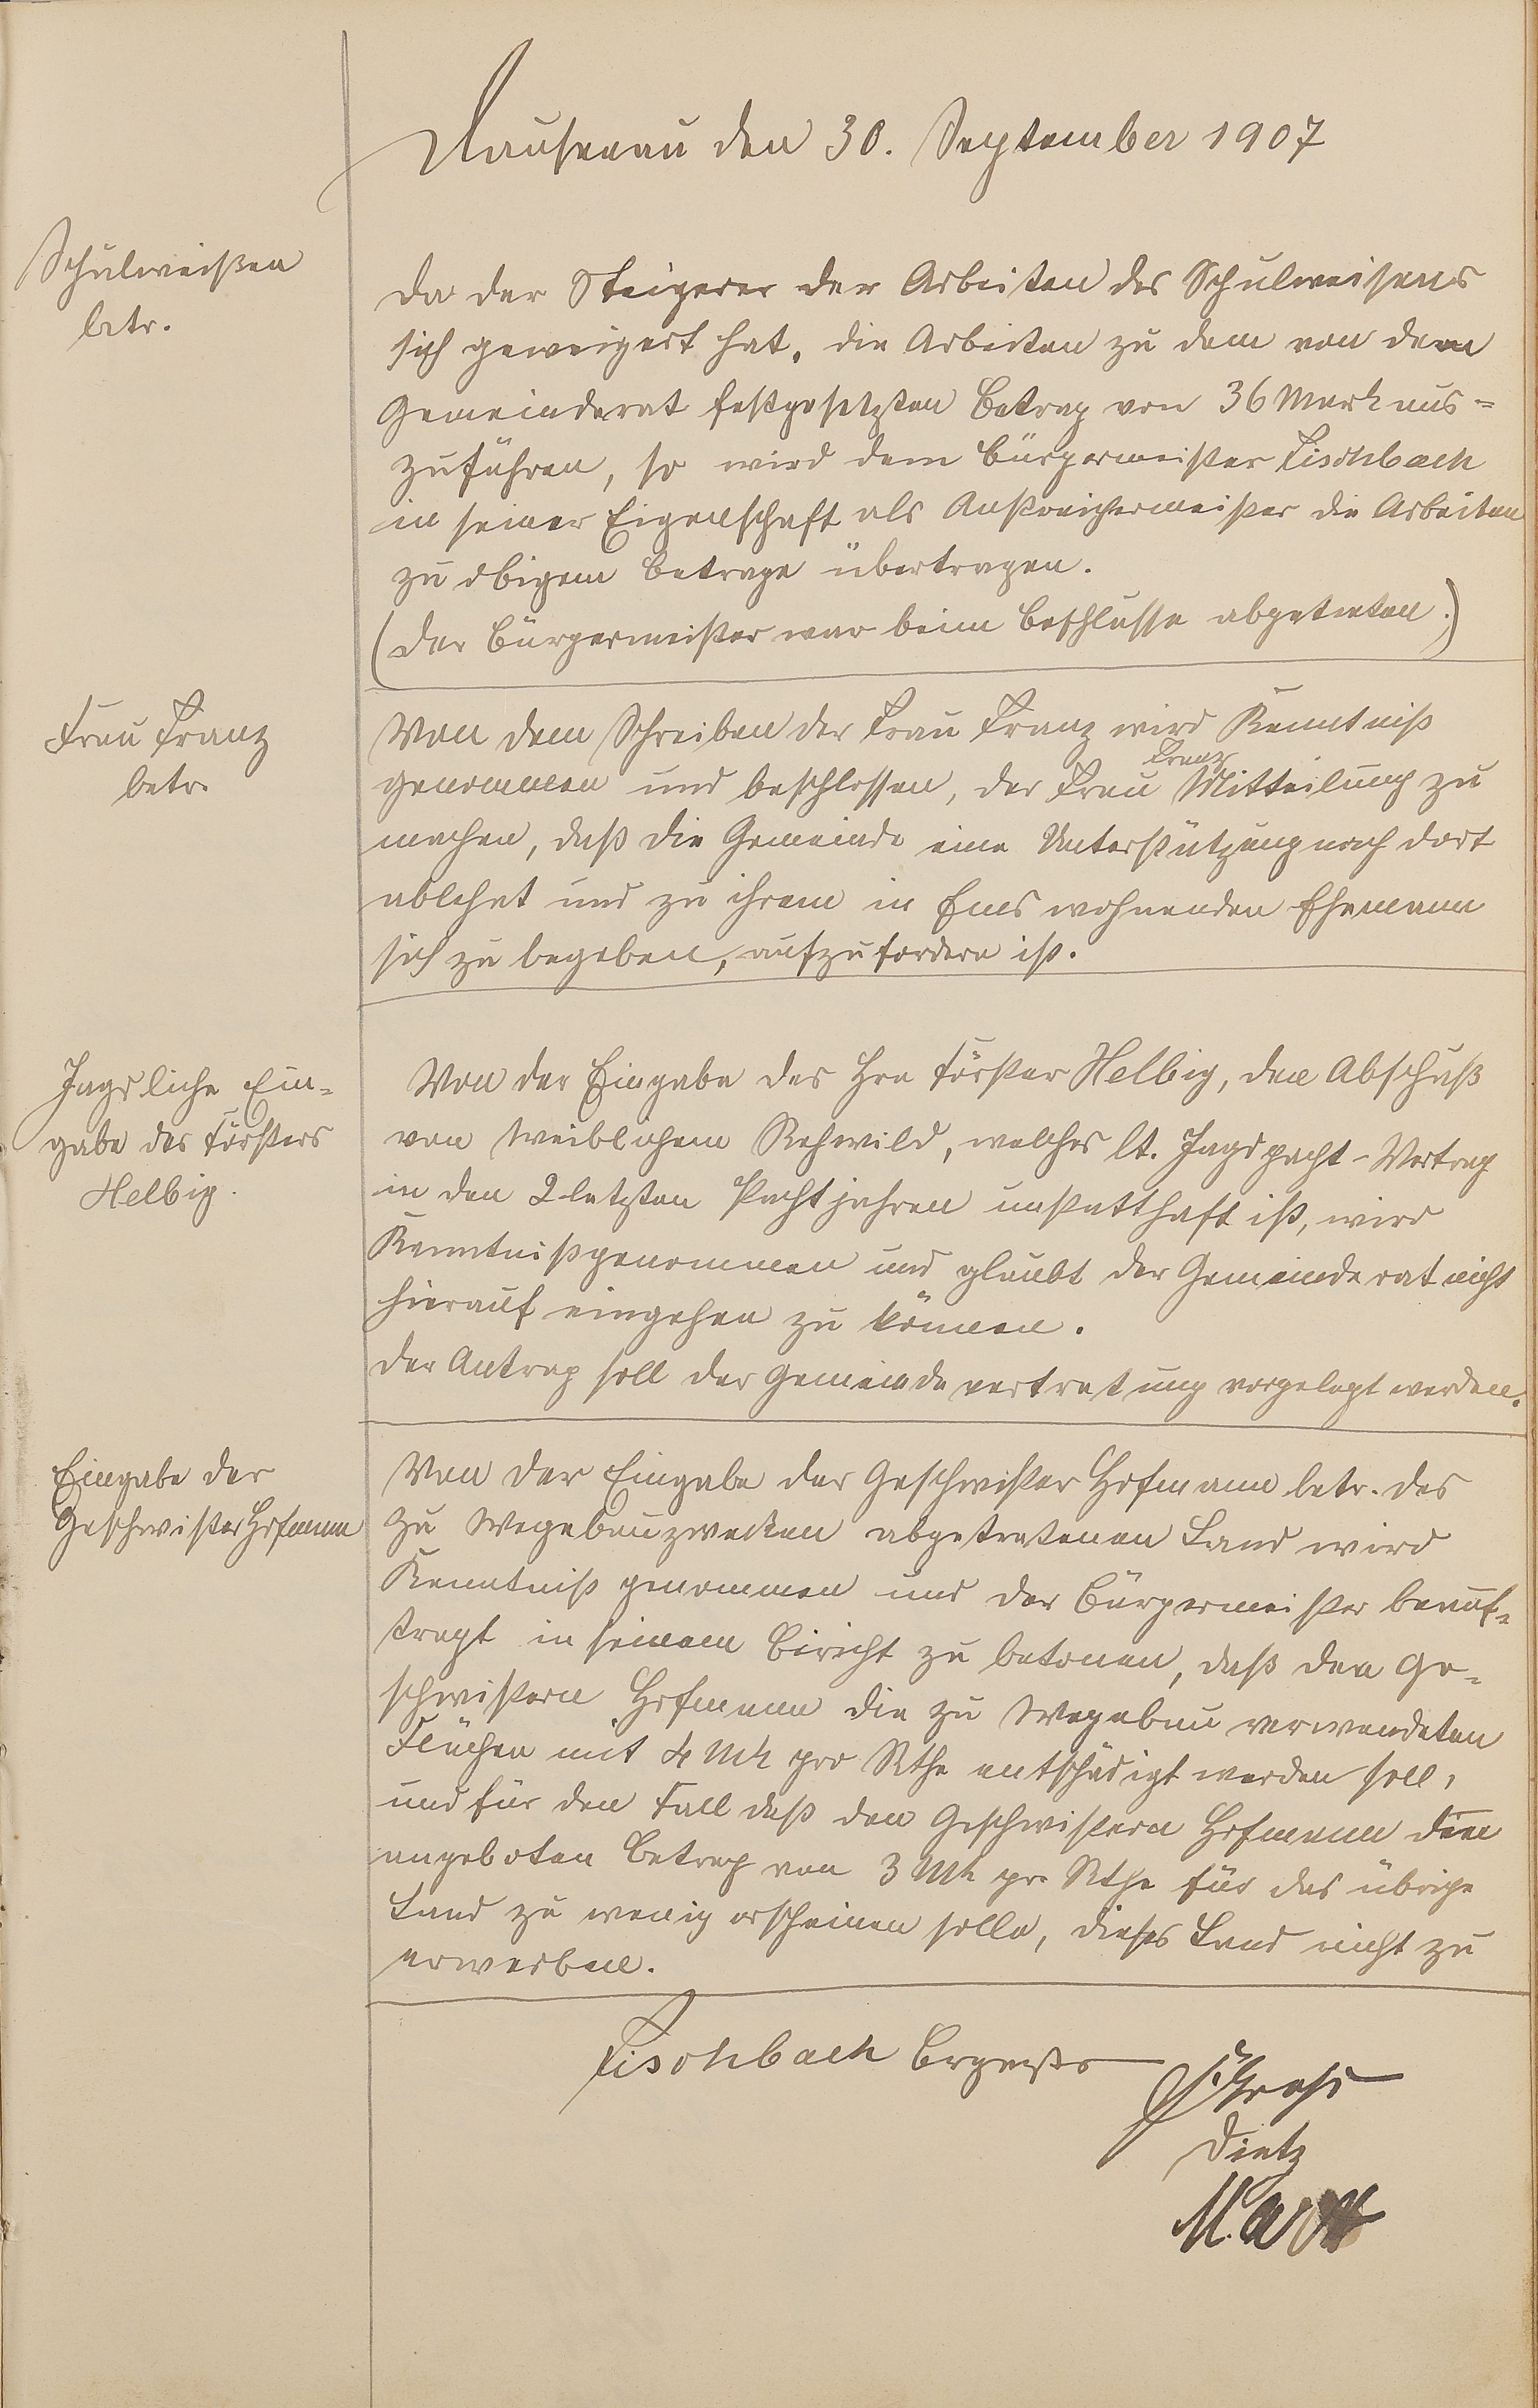 Dausenau den 30. September 1907
Schulweißen
betr.
Da der Steigerer der Arbeiten des Schulweisens
sich geweigert hat, die Arbeiten zu dem von dem
Gemeinderat festgesetzten Betrag von 36 Mark aus=
zuführen, so wird dem Bürgermeister Fischbach
in seiner Eigenschaft als Anstreichermeister die Arbeiten
zu obigem Betrage übertragen.
(Der Bürgermeister war beim Beschlusse abgetreten.)
Frau Franz
betr.
Von dem Schreiben der Frau Franz wird Kenntniß
genommen und beschlossen, der Frau Franz Mitteilung zu
machen, daß die Gemeinde eine Unterstützung nach dort
ablehnt und zu ihrem in Ems wohnenden Ehemann
sich zu begeben, aufzufordern ist.
Jagdliche Ein-
gabe des Försters
Helbig.
Von der Eingabe des Hrn Förster Helbig, den Abschuß
von weiblichem Rehwild, welches lt. Jagdpacht-Vertrag
in den 2 letzten Pachtjahren unstatthaft ist, wird
Kenntniß genommen und glaubt der Gemeinderat nicht
hierauf eingehen zu können.
Der Antrag soll der Gemeindevertretung vorgelegt werden.
Eingabe der
Geschwister Hofmann
Von der Eingabe der Geschwister Hofmann betr. des
zu Wegebauzwecken abgetretenen Land wird
Kenntniß genommen und der Bürgermeister beauf=
tragt in seinem Bericht zu betonen, daß den Ge=
schwistern Hofmann die zu Wegebau verwendeten
Flächen mit 4 Mk pro Rthe entschädigt werden soll,
und für den Fall daß den Geschwistern Hofmann den
angeboten Betrag von 3 Mk pr. Rthe für das übrige
Land zu wenig erscheinen solle, dieses Land nicht zu
erwerben.
Fischbach Brgmstr
Dietz